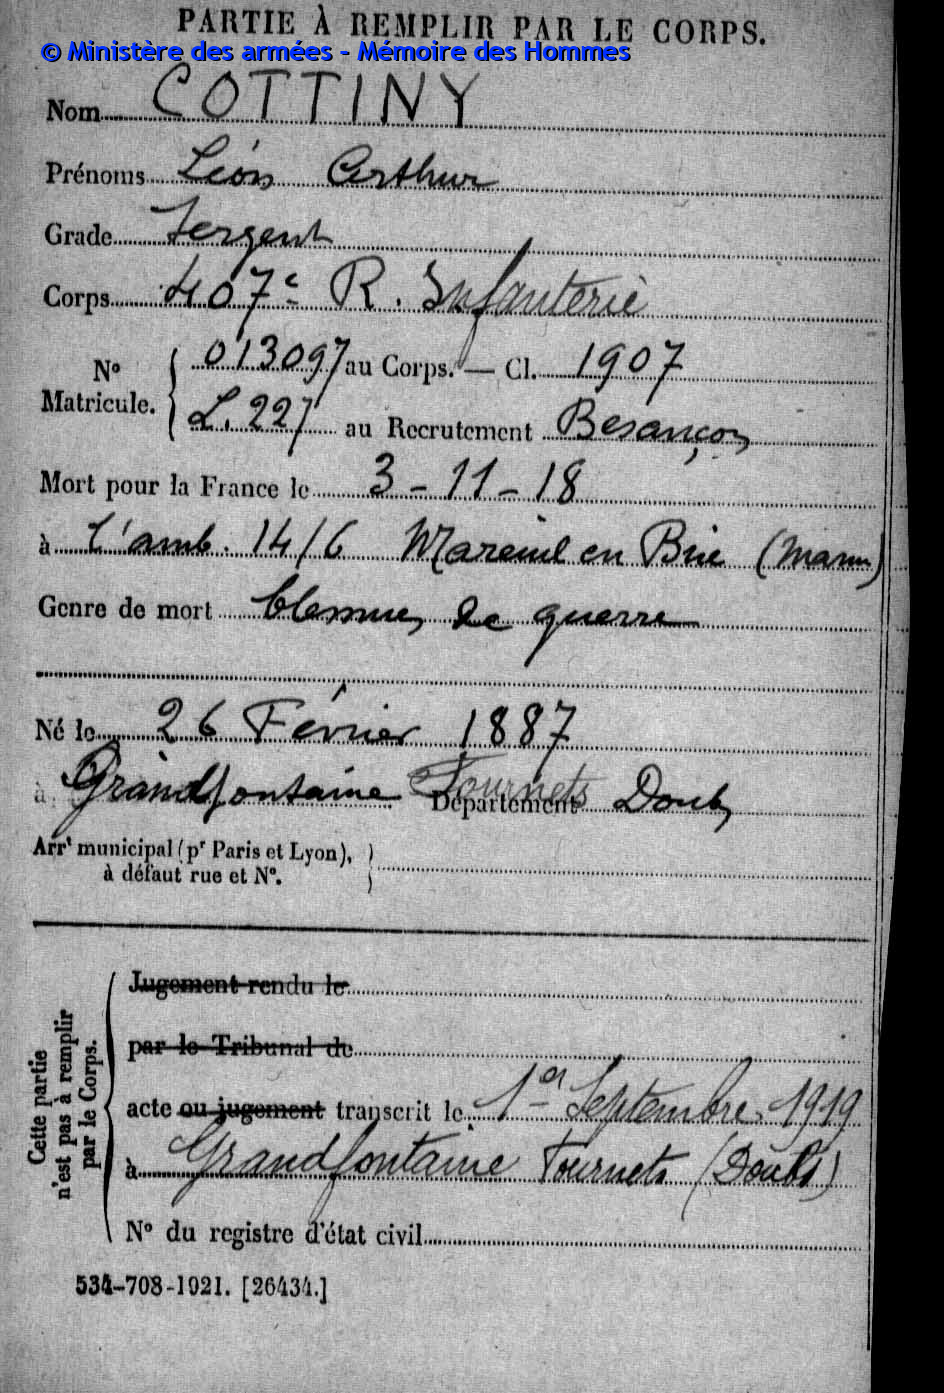 PARTIE À REMPLIR PAR LE CORPS.
© Ministère des armées - Mémoire des Hommes
Nom COTTINY
Prénoms Léon Arthur
Grade Sergent
Corps 407e R. Infanterie
No Matricule. 013097 au Corps. — Cl. 1907
L. 227 au Recrutement Besançon
Mort pour la France le 3-11-18
à l'amb. 14/6 Mareuil en Brie (Marne)
Genre de mort blessures de guerre
Né le 26 Février 1887
à Grandfontaine Fournets Département Doubs
Arrt municipal (pr Paris et Lyon),
à défaut rue et No.
Cette partie n'est pas à remplir par le Corps.
Jugement rendu le
par le Tribunal de
acte ou jugement transcrit le 1er Septembre 1919
à Grandfontaine Fournets (Doubs)
No du registre d'état civil
534-708-1921. [26434.]